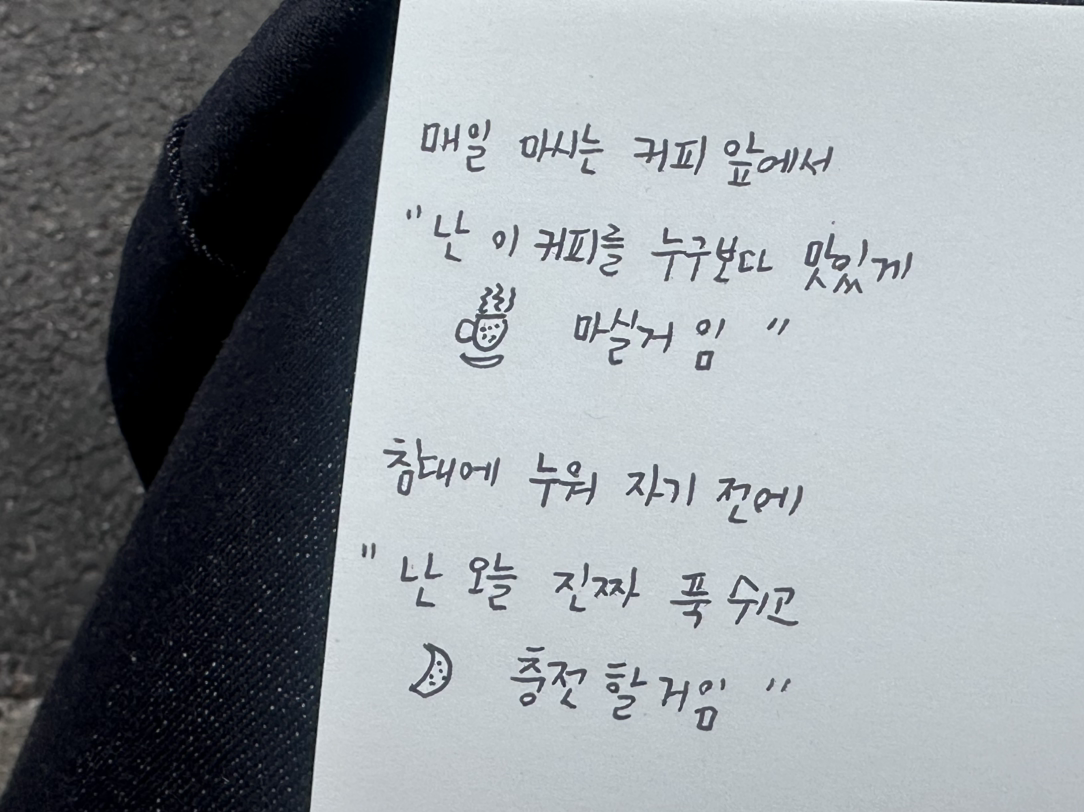 매일 마시는 커피 앞에서
"난 이 커피를 누구보다 맛있게
마실거임"
침대에 누워 자기 전에
"난 오늘 진짜 푹 쉬고
충전할거임"